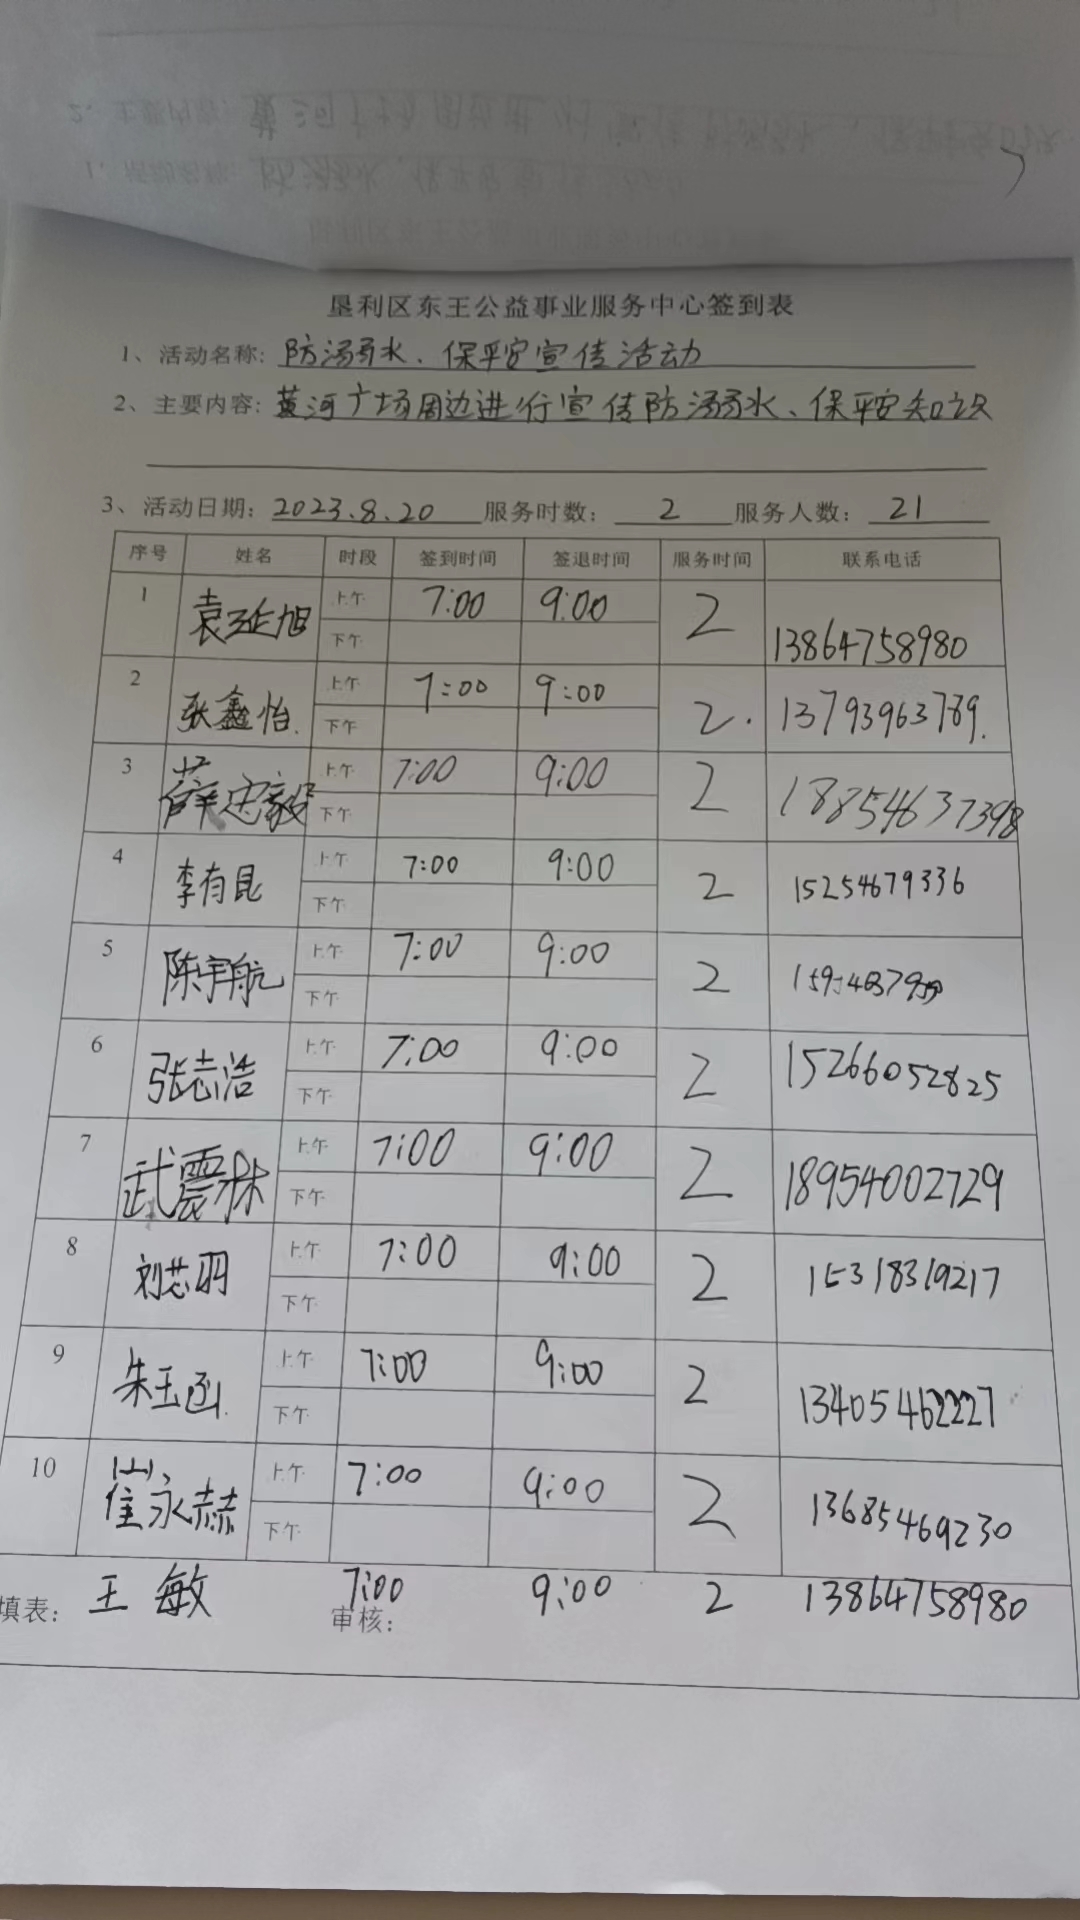 垦利区东王公益事业服务中心签到表
1、活动名称: 防溺水、保平安宣传活动
2、主要内容: 黄河广场周边进行宣传防溺水、保平安知识
3、活动日期: 2023.8.20 服务时数: 2 服务人数: 21
序号 姓名 时段 签到时间 签退时间 服务时间 联系电话
1 袁延旭 上午 7:00 9:00 2 13864758980
下午
2 张鑫怡. 上午 7:00 9:00 2. 13793963789.
下午
3 薛忠毅 上午 7:00 9:00 2 18854637398
下午
4 李有昆 上午 7:00 9:00 2 15254679336
下午
5 陈宇航 上午 7:00 9:00 2
下午
6 张志浩 上午 7:00 9:00 2 15266052825
下午
7 武震林 上午 7:00 9:00 2 18954002729
下午
8 刘芯羽 上午 7:00 9:00 2 15318319217
下午
9 朱玉函. 上午 7:00 9:00 2 13405462227
下午
10 崔永赫 上午 7:00 9:00 2 13685469230
下午
填表: 王敏 7:00 9:00 2 13864758980
审核: